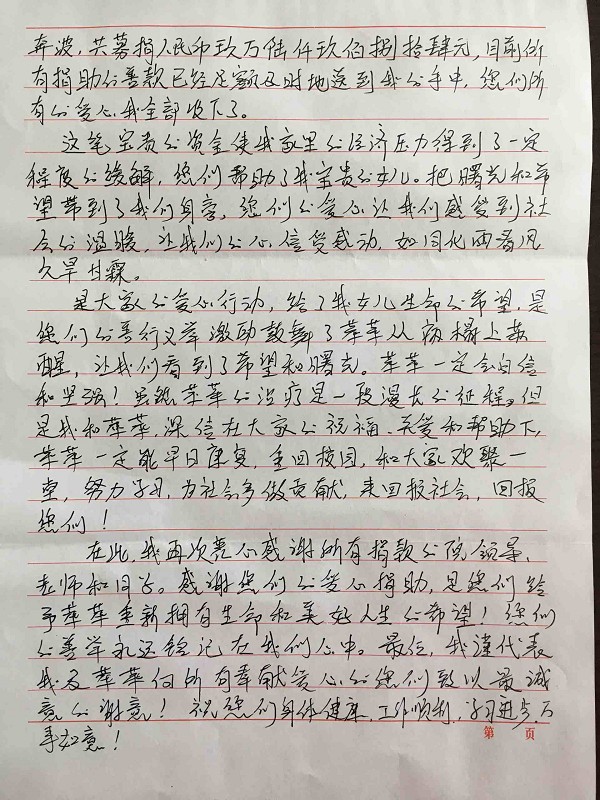 奔波，共募捐人民币玖万陆仟玖佰捌拾肆元，目前所
有捐助的善款已经足额及时地送到我的手中，您们所
有的爱心我全部收下了。
这笔宝贵的资金使我家里的经济压力得到了一定
程度的缓解，您们帮助了我宝贵的女儿。把曙光和希
望带到了我们身旁，您们的爱心让我们感受到社
会的温暖，让我们的心倍受感动，如同化雨春风
久旱甘霖。
是大家的爱心行动，给了我女儿生命的希望，是
您们的善行义举激励鼓舞了苹苹从病榻上苏
醒，让我们看到了希望和曙光。苹苹一定会自信
和坚强！虽然苹苹的治疗是一段漫长的征程。但
是我和苹苹，深信在大家的祝福、关爱和帮助下，
苹苹一定能早日康复，重回校园，和大家欢聚一
堂，努力学习，为社会多做贡献，来回报社会，回报
您们！
在此，我再次衷心感谢所有捐款的院领导、
老师和同学。感谢您们的爱心捐助，是您们给
予苹苹重新拥有生命和美好人生的希望！您们
的善举永远铭记在我们心中。最后，我谨代表
我及苹苹向所有奉献爱心的您们致以最诚
意的谢意！祝您们身体健康，工作顺利，学习进步，万
事如意！
第 页